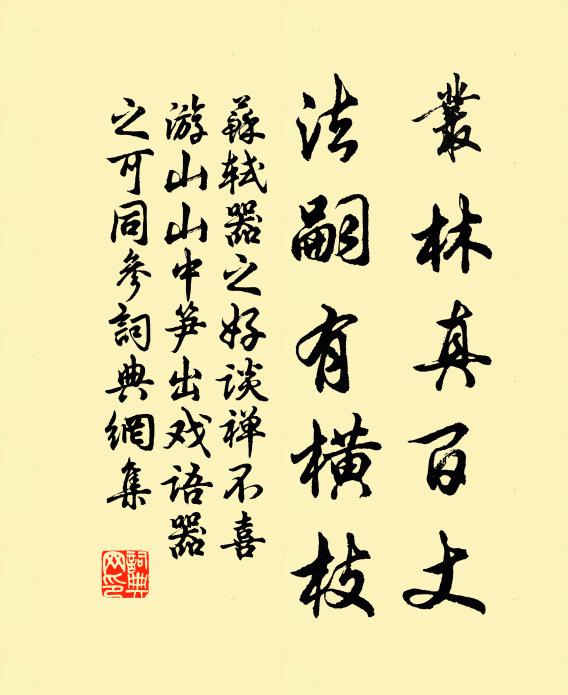 叢林真百丈
法嗣有橫枝
蘇軾器之好談禅不喜
游山山中笋出戏語器
之可同參詞典網集
詞典網印